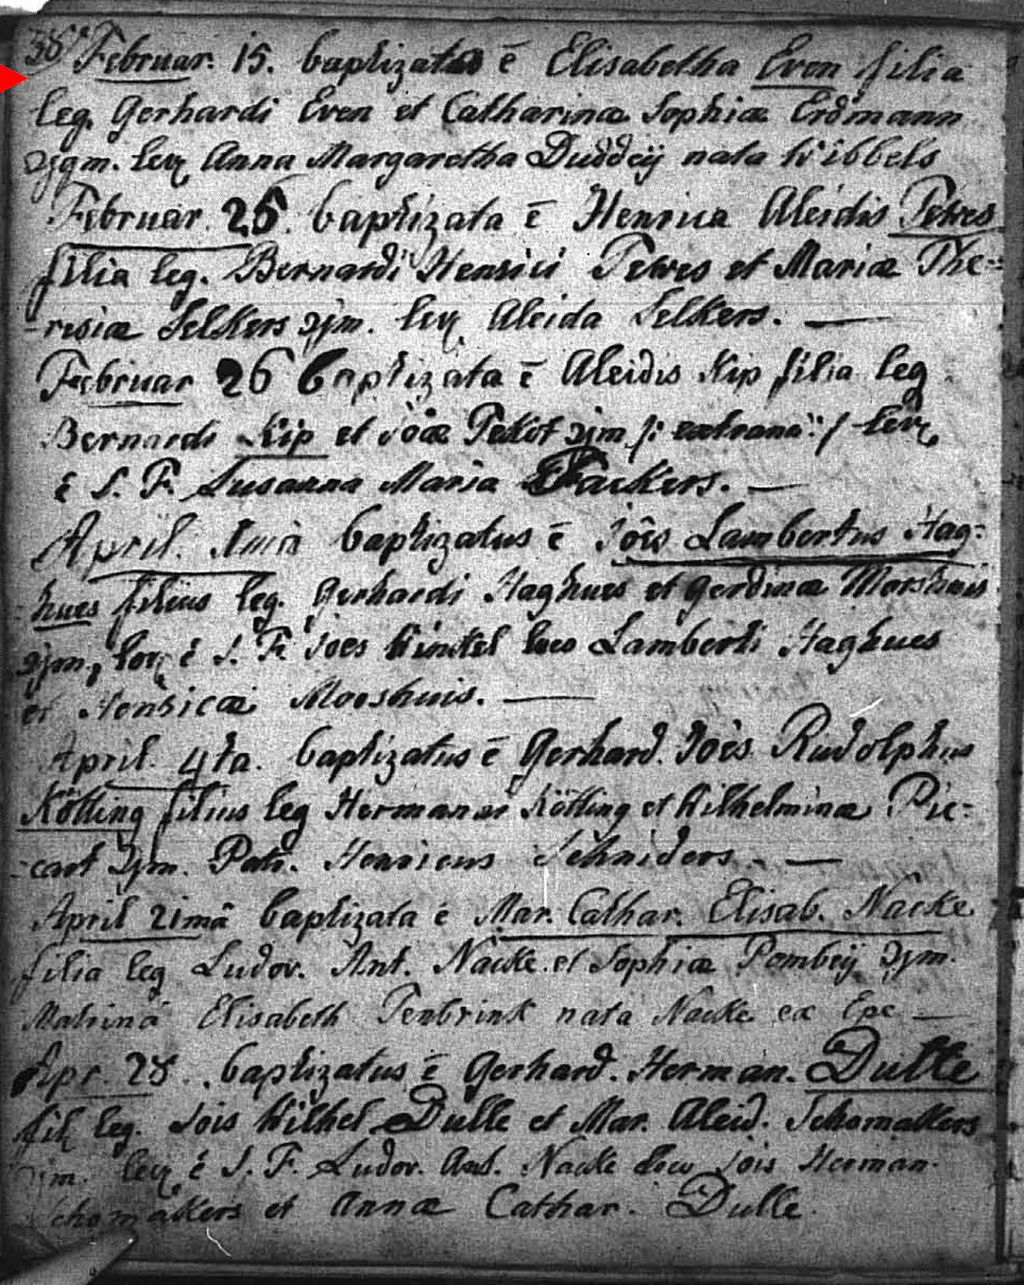 38 Februar. 15. baptizata ē Elisabetha Even filia
leg. Gerhardi Even et Catharinæ Sophiæ Erdmann
Anna Margaretha Duddeij nata Wibbels
Februar. 25. baptizata ē Henrica Aleidis Pewes
filia leg. Bernardi Henrici Pewes et Mariæ The=
=resiæ Selkers Aleida Selkers. —
Februar 26 baptizata ē Aleidis Kip filia leg
Bernardi Kip et Joæ
S. F. Susanna Maria Fackers. —
April. 1mâ baptizatus ē Jois Lambertus Hag=
=hues filius leg. Gerhardi Haghues et Gerdinæ Morshuis
S. F. Joes Winkel loco Lamberti Haghues
et Henricæ Morshuis. —
April. 4ta. baptizatus ē Gerhard. Joës Rudolphus
Kötting filius leg Hermanni Kötting et Wilhelminæ Pic=
=cart Patr. Henricus Schniders. —
April 21mâ baptizata ē Mar. Cathar. Elisab. Nacke
filia leg Ludov. Ant. Nacke et Sophiæ Pombeij
Matrina Elisabeth Tenbrink nata Nacke ex Epe —
Apr. 28. baptizatus ē Gerhard. Herman. Dulle
fil leg. Jois Wilhel. Dulle et Mar. Aleid. Schomakers
S. F. Ludov. Ant. Nacke loco Jois Herman.
Schomakers et Annæ Cathar. Dulle.